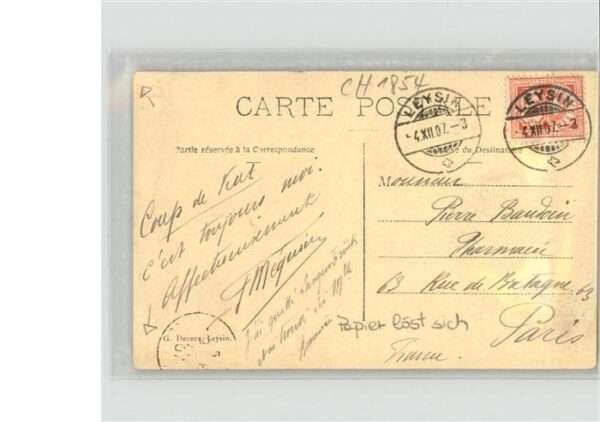 CH 1854
CARTE POSTALE
LEYSIN
4.XII.07.–3
LEYSIN
4.XII.07.–3
Partie réservée à la Correspondance
du Destinataire
Coup de
c'est toujours moi.
Affectueusement
J'ai quitté
Monsieur
Pierre Baudoin
Pharmacie
63 Rue de Bretagne 63
Paris
France.
Papier löst sich
G. Leysin.